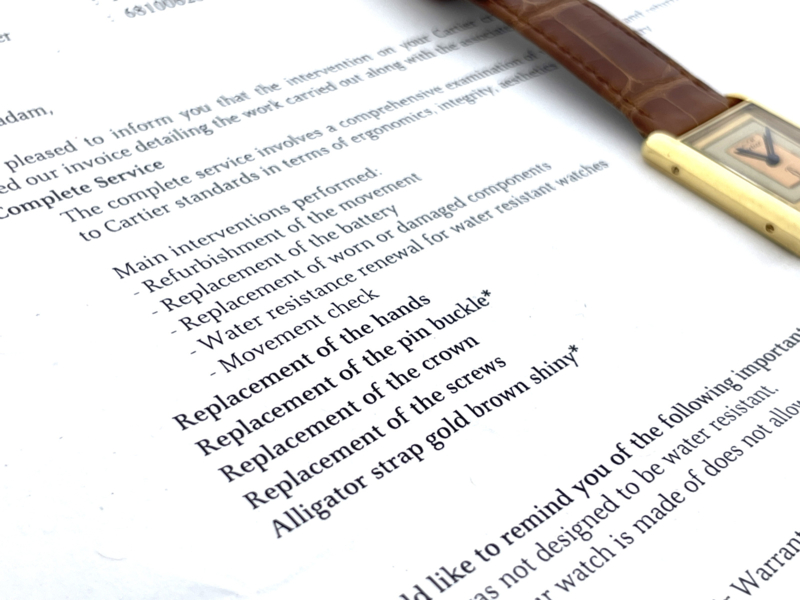 681006
adam,
pleased to inform you that the intervention on your Cartier
ed our invoice detailing the work carried out along with the
Complete Service
The complete service involves a comprehensive examination of
to Cartier standards in terms of ergonomics, integrity, aesthetics
Main interventions performed:
- Refurbishment of the movement
- Replacement of the battery
- Replacement of worn or damaged components
- Water resistance renewal for water resistant watches
- Movement check
Replacement of the hands
Replacement of the pin buckle*
Replacement of the crown
Replacement of the screws
Alligator strap gold brown shiny*
ld like to remind you of the following important
as not designed to be water resistant.
ur watch is made of does not allow
- Warrant